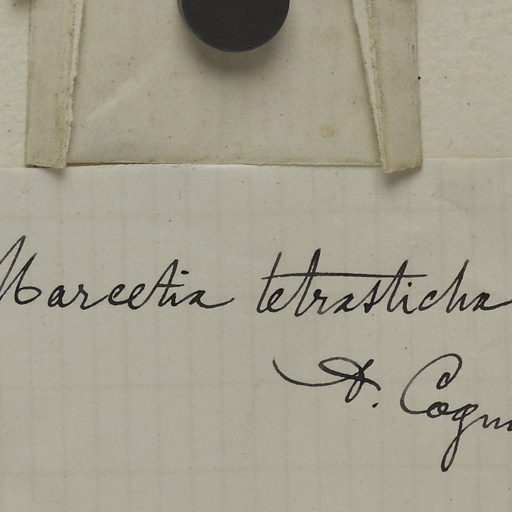 Marcetia tetrasticha
A. Cogn